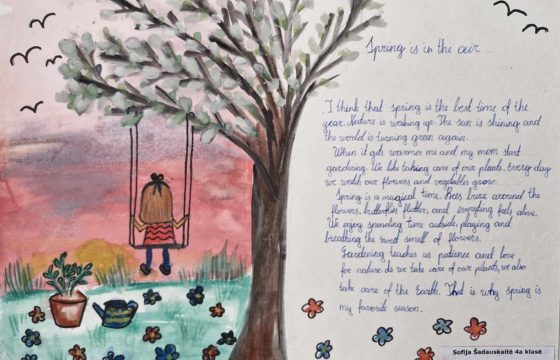 Spring is in the air...
I think that spring is the best time of the
year. Nature is waking up. The sun is shining and
the world is turning green again.
When it gets warmer me and my mom start
gardening. We like taking care of our plants. Every day
we watch our flowers and vegetables grow.
Spring is a magical time. Bees buzz around the
flowers, butterflies flutter, and everyting feels alive.
We enjoy spending time outside, playing and
breathing the sweet smell of flowers.
Gardening teaches us patience and love
for nature. As we take care of our plants, we also
take care of the Earth. That is why spring is
my favorite season.
Sofija Šadauskaitė 4a klasė